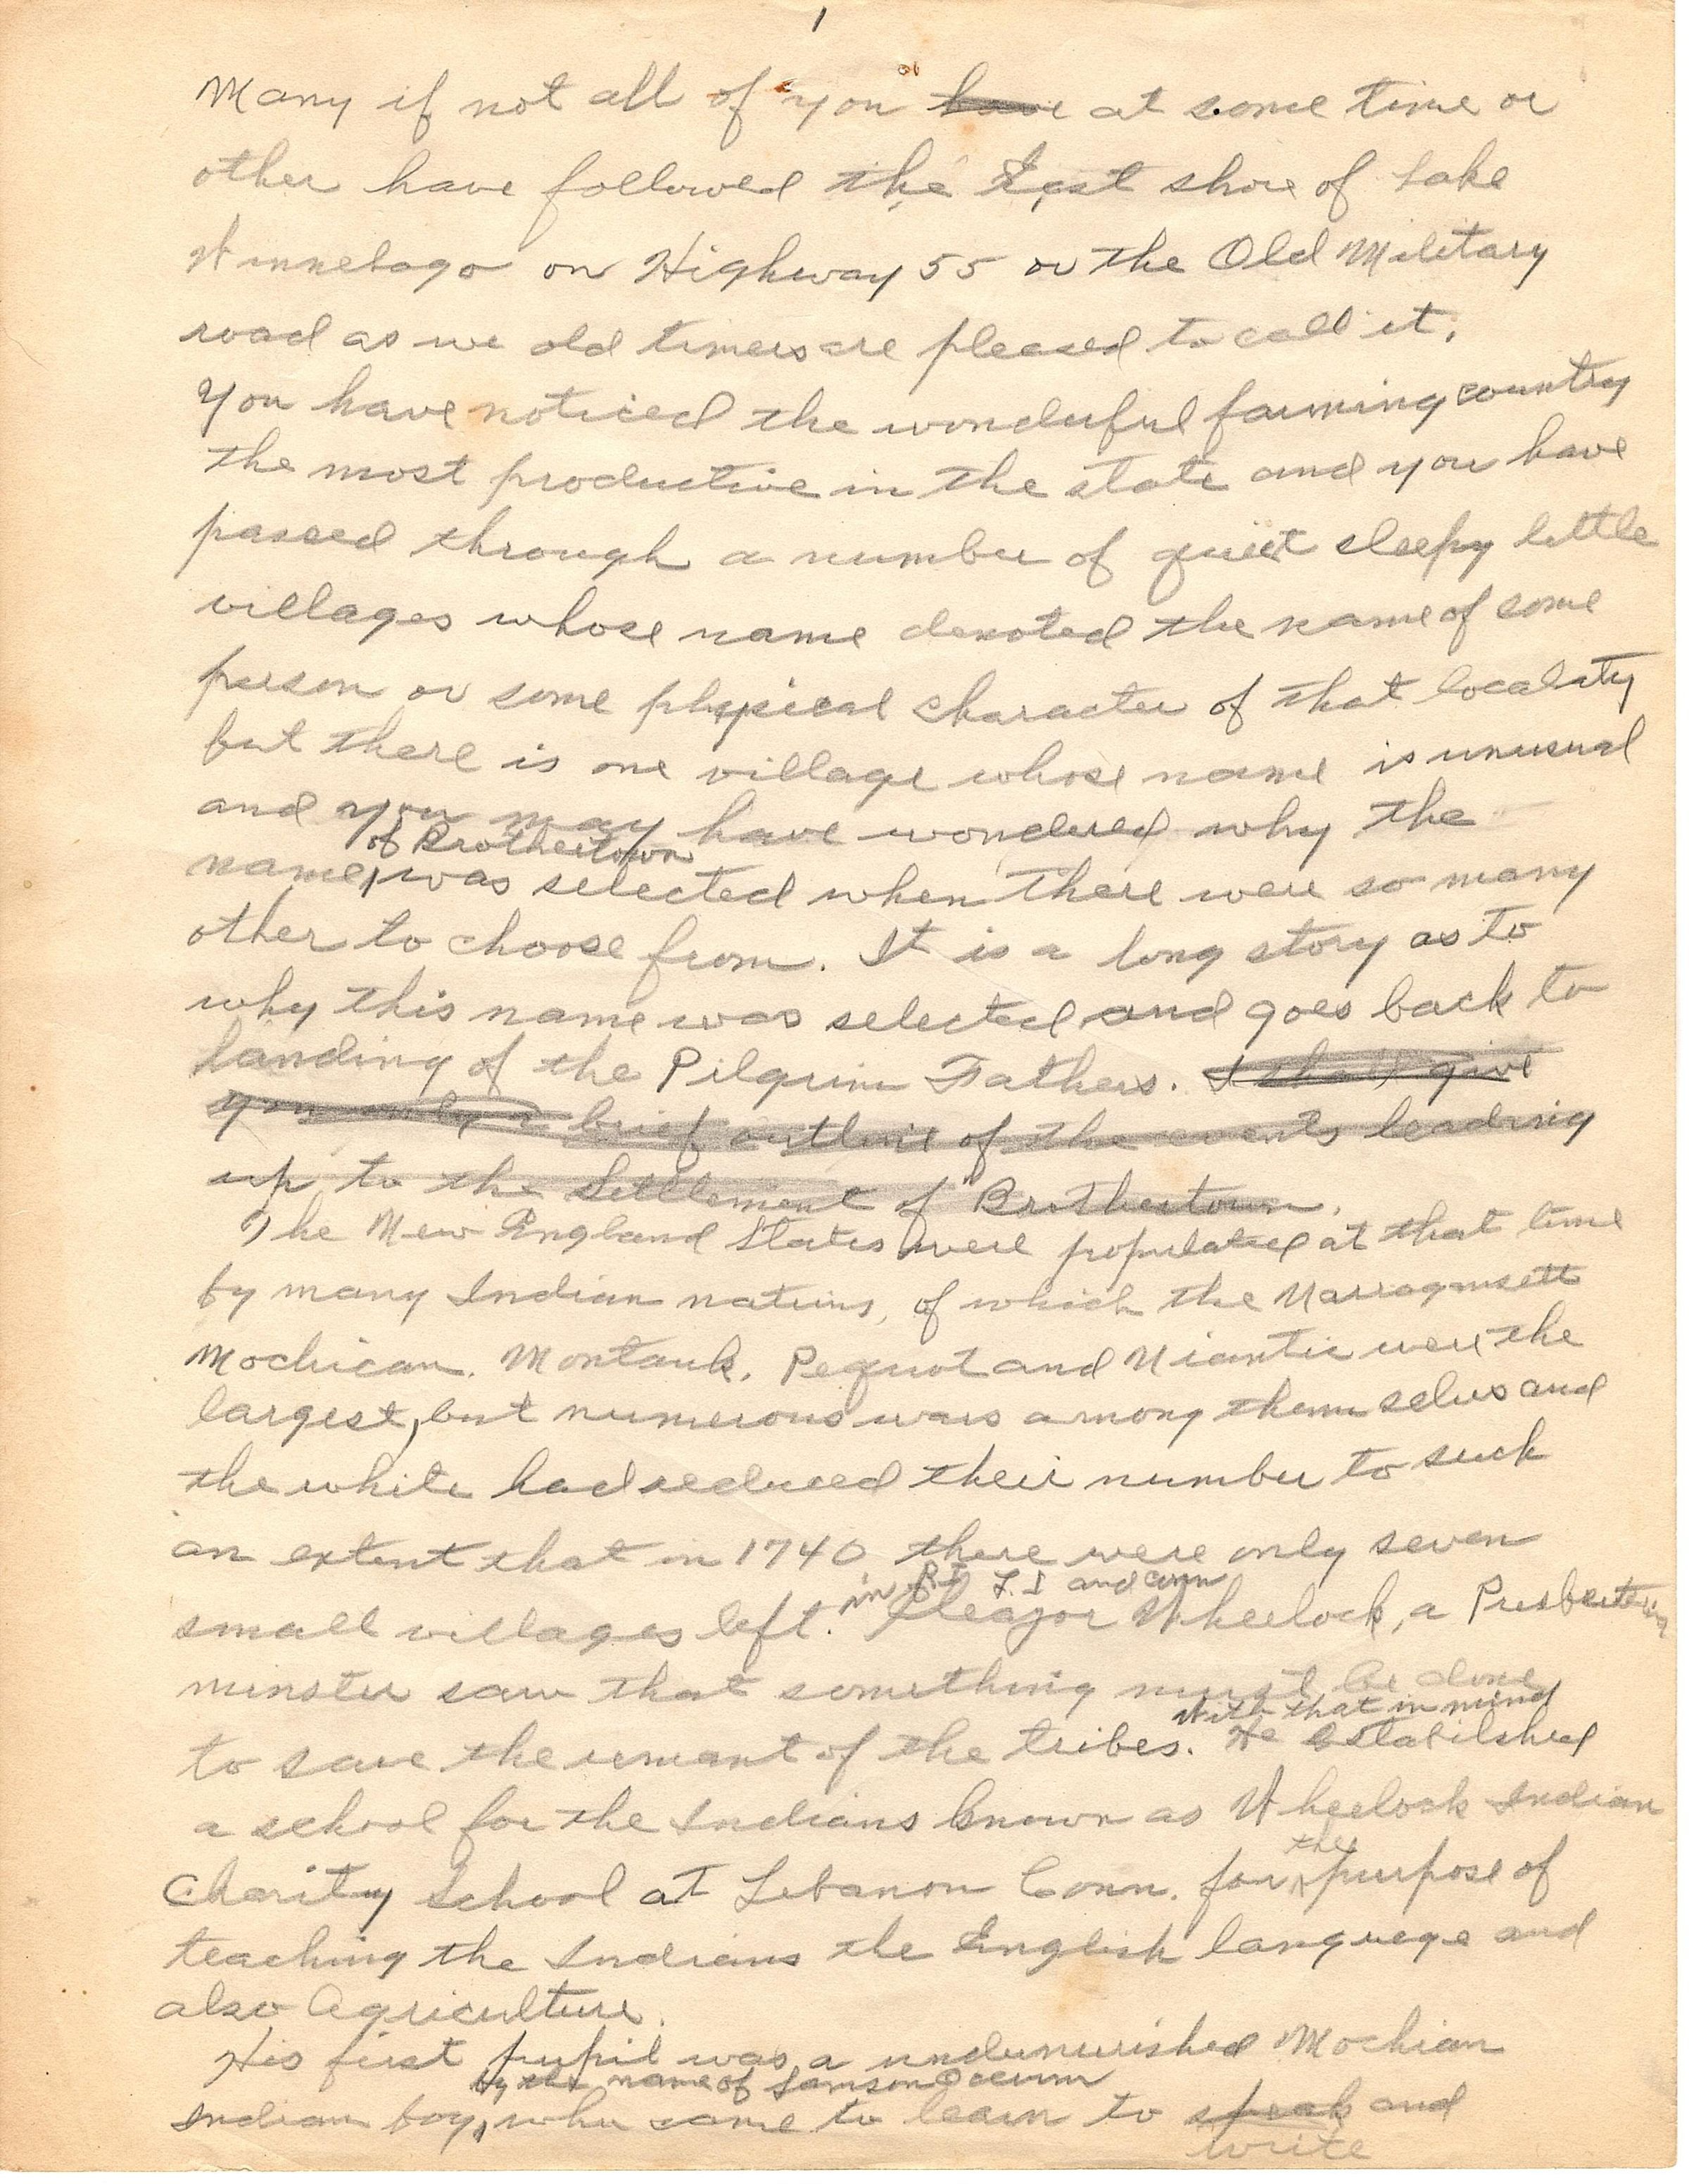 1
Many if not all of you have at some time or
other have followed the East shore of Lake
Winnebago on Highway 55 or the Old Military
road as we old timers are pleased to call it.
You have noticed the wonderful farming country
the most productive in the state and you have
passed through a number of quiet sleepy little
villages whose name denoted the name of some
person or some physical character of that locality
but there is one village whose name is unusual
and you may have wondered why the
of Brothertown
name, was selected when there were so many
other to choose from. It is a long story as to
why this name was selected and goes back to
landing of the Pilgrim Fathers. I shall give
you only a brief outline of the events leading
up to the Settlement of Brothertown.
The New England States were populated at that time
by many Indian nations, of which the Narragansett
Mochican. Montauk. Pequot and Niantic were the
largest, but numerous wars among themselves and
the white had reduced their number to such
an extent that in 1740 there were only seven
in R.I L.I and Conn
small villages left. Eleazor Wheelock, a Presbeterian
minster saw that something must be done
With that in mind
to save the remant of the tribes. He establilshed
a school for the Indians known as Wheelock Indian
the
Charity School at Lebanon Conn. for purpose of
teaching the Indians the English languege and
also Agriculture.
His first pupil was a undernurished Mochian
by the name of Samson Occum
Indian boy, who came to learn to speak and
write